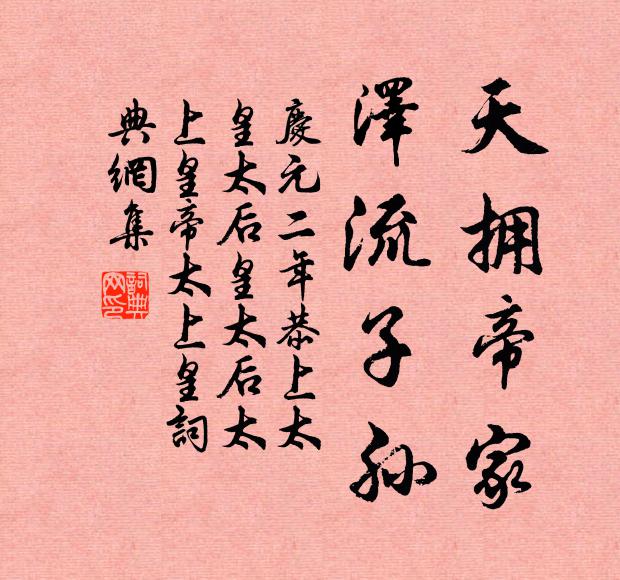 天拥帝家
澤流子孙
慶元二年恭上太
皇太后皇太后太
上皇帝太上皇詞
典網集
詞典网印